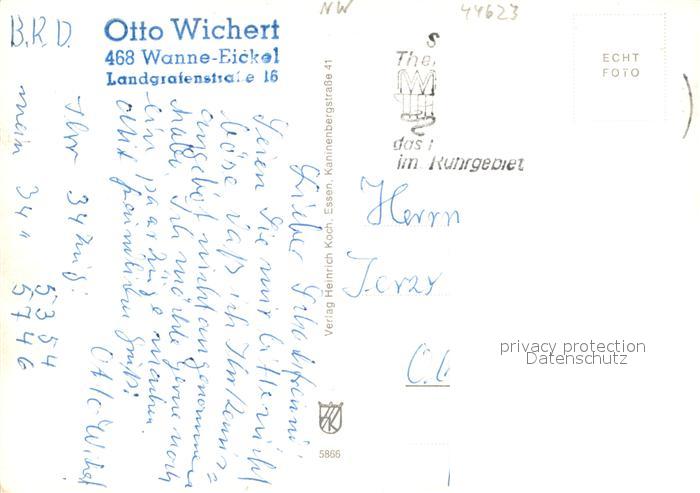 B.R.D.
Otto Wichert
468 Wanne-Eickel
Landgrafenstraße 16
NW
44623
Lieber Schachfreund!
Seien Sie mir bitte nicht
böse daß ich Ihr Remis=
angebot nicht angenommen
habe. Ich möchte gerne noch
ein paar Züge machen.
Mit freundlichem Gruß!
Otto Wichert
Ihr 34 Zug: 5354
mein 34 " 5746
Verlag Heinrich Koch, Essen, Kaninenbergstraße 41
5866
das
im Ruhrgebiet
ECHT
FOTO
Herrn
Jerzy
privacy protection
Datenschutz